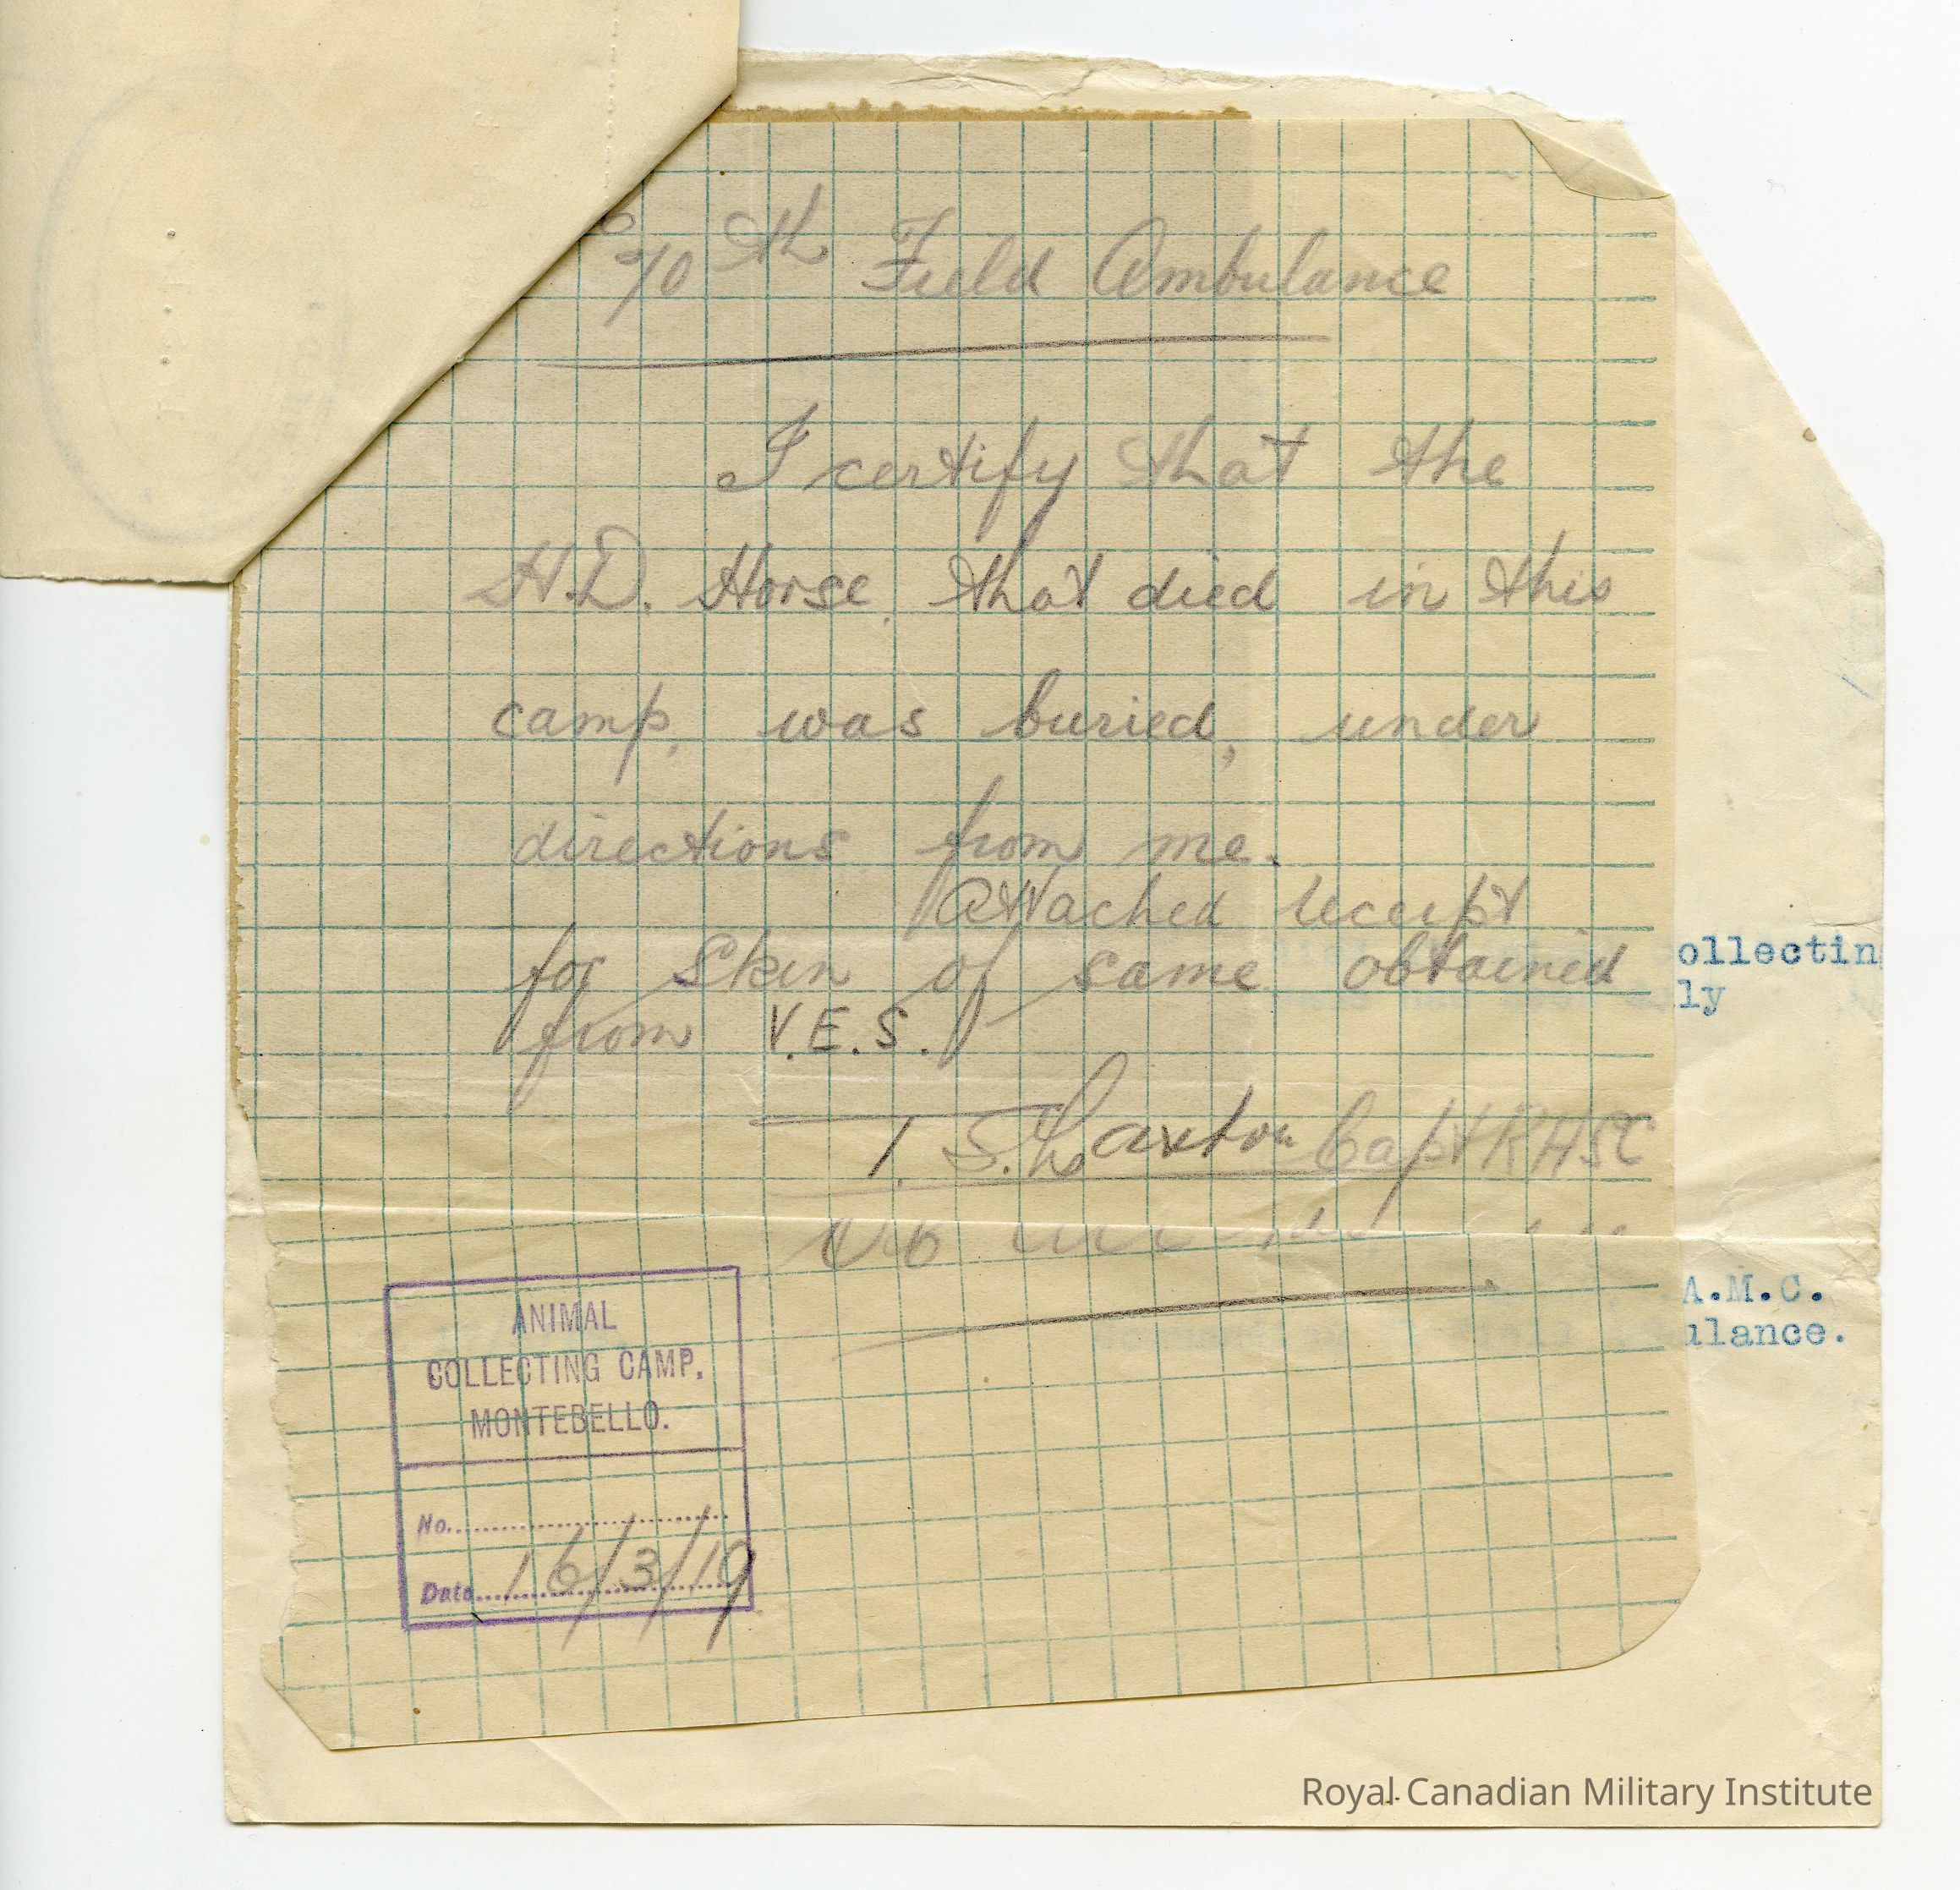 70th Field Ambulance
I certify that the
H.D. Horse that died in this
camp, was buried, under
directions from me.
Attached receipt
for Skin of same obtained
from V.E.S.
Capt
ANIMAL
COLLECTING CAMP.
MONTEBELLO.
No.
Date 16/3/19
ollecting
ly
A.M.C.
ulance.
Royal Canadian Military Institute